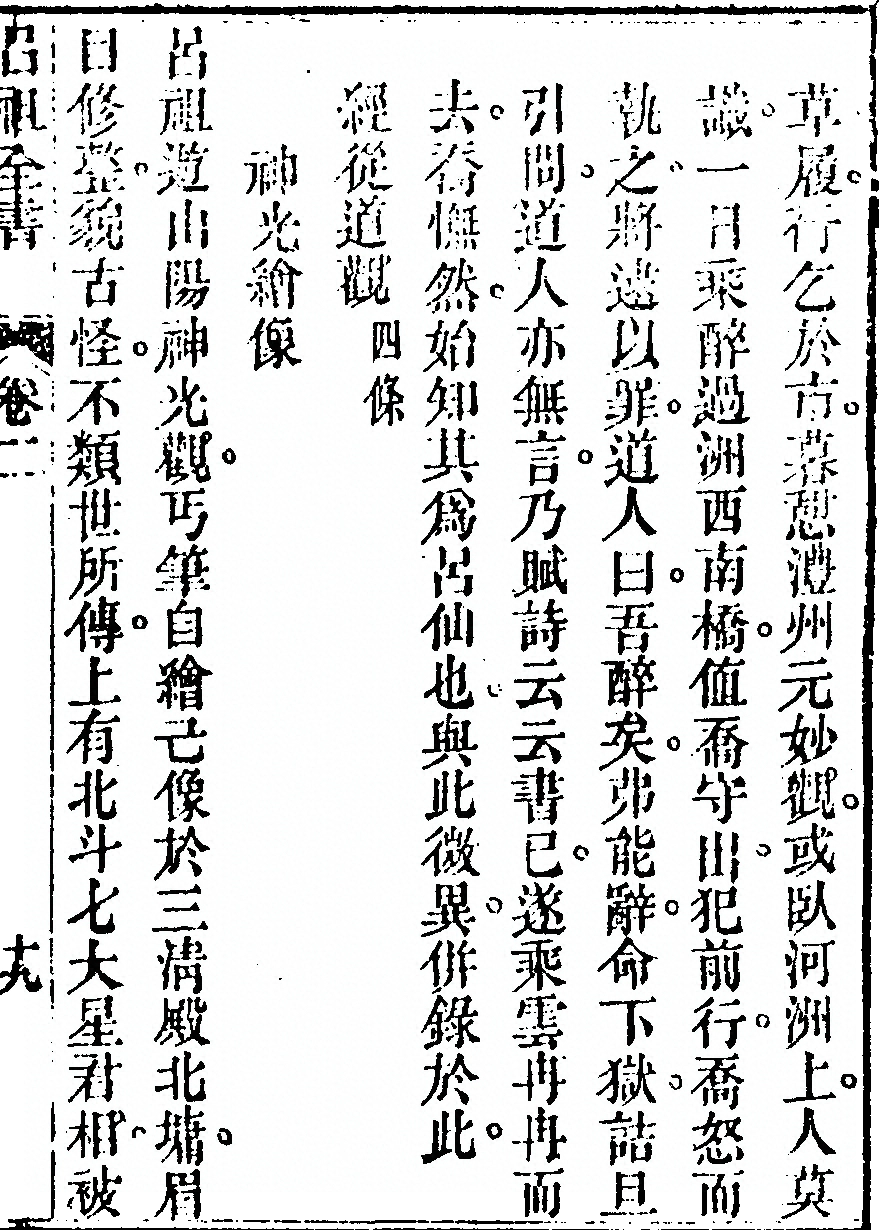 草履。行乞於市。暮憇澧州元妙觀。或臥河洲上。人莫
識。一日乘醉過洲西南橋。值喬守出。犯前行。喬怒而
執之。將逮以罪。道人曰。吾醉矣。弗能辭。命下獄。詰旦
引問。道人亦無言。乃賦詩云云。書已。遂乘雲冉冉而
去。喬憮然。始知其爲呂仙也。與此微異。併錄於此。
經從道觀 四條
神光繪像
呂祖遊山陽神光觀。丐筆自繪己像於三清殿北墉。眉
目修整。貌古怪。不類世所傳。上有北斗七大星君相。被
呂祖全書 卷二 十九